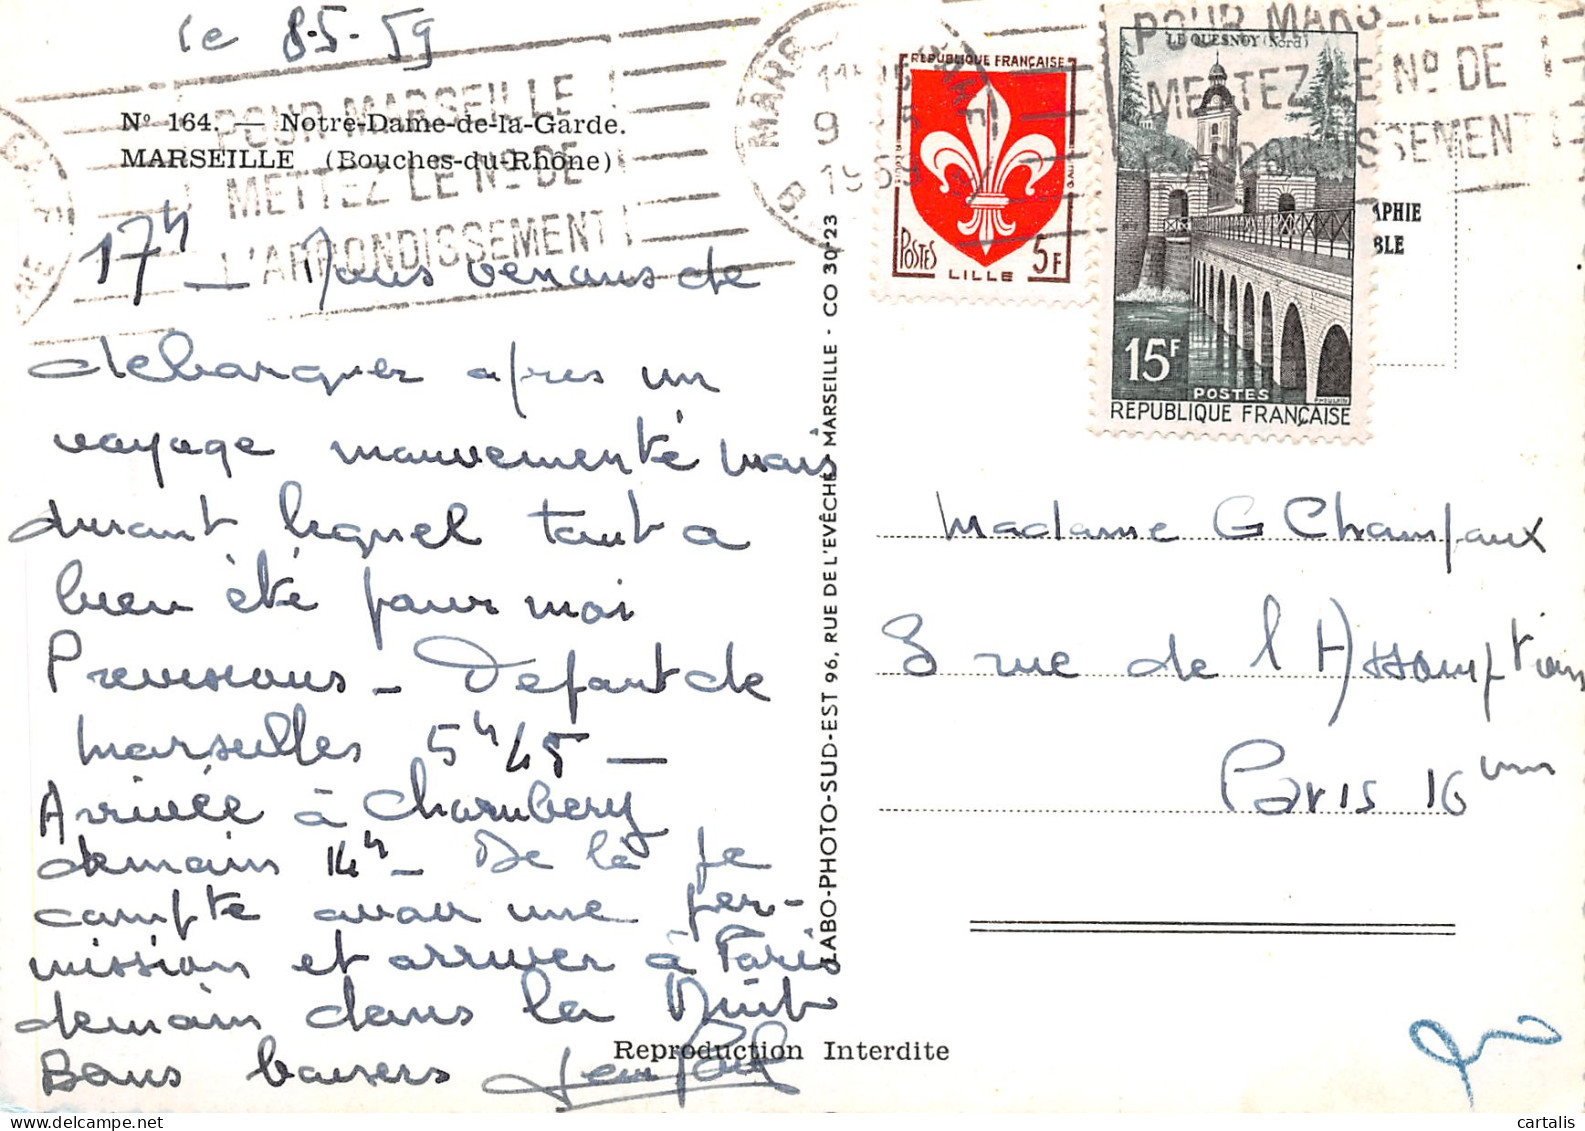 le 8-5-59
N° 164. — Notre-Dame-de-la-Garde.
MARSEILLE (Bouches-du-Rhône)
POUR MARSEILLE
METTEZ LE N° DE
L'ARRONDISSEMENT
17h — Nous venons de
debarquer apres un
voyage mouvementé mais
durant lequel tout a
bien été pour moi
Previsions — Depart de
Marseilles 5h45 —
Arrivée à Chambery
demain 14h — De là je
compte avoir une per-
mission et arriver à Paris
demain dans la Nuit
Bons baisers Jean Paul
LABO-PHOTO-SUD-EST 96, RUE DE L'EVÊCHÉ MARSEILLE - CO 30 23
Reproduction Interdite
MARS
11
9
1959
B.
REPUBLIQUE FRANÇAISE
POSTES
5F
LILLE
POUR MARSEILLE
METTEZ LE N° DE
L'ARRONDISSEMENT
LE QUESNOY (Nord)
15F
POSTES
REPUBLIQUE FRANÇAISE
APHIE
BLE
Madame G Champaux
3 rue de l'Assomption
Paris 16
cartalis